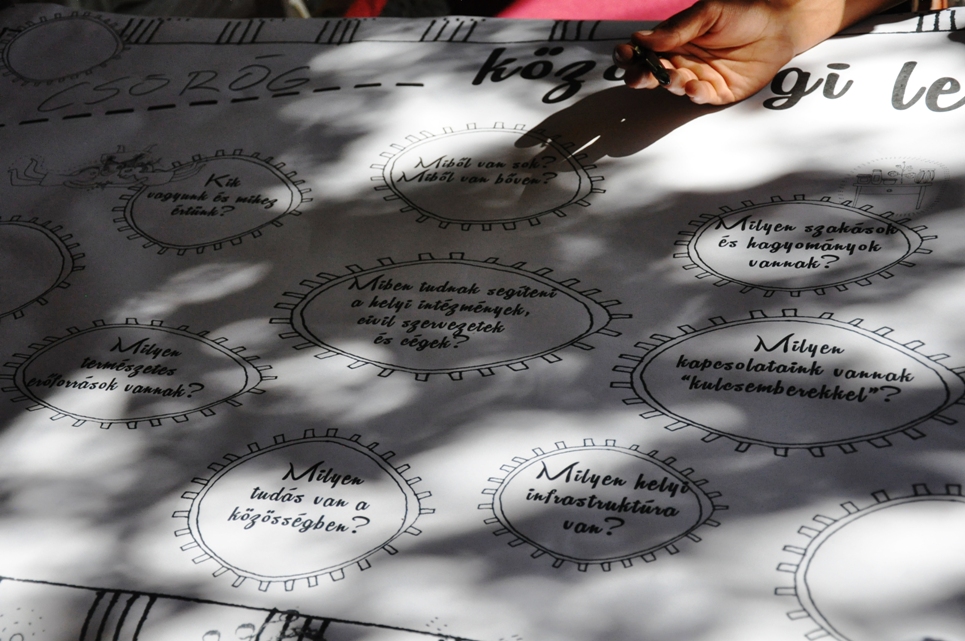 CSÖRÖG
köz gi le
Miből van sok?
Miből van bőven?
Kik
vagyunk és mihez
értünk?
Milyen szakások
és hagyományok
vannak?
Miben tudnak segíteni
a helyi intézmények,
civil szervezetek
és cégek?
Milyen
természetes
erőforrások vannak?
Milyen
kapcsolataink vannak
"kulcsemberekkel"?
Milyen
tudás van a
közösségben?
Milyen helyi
infrastruktúra
van?